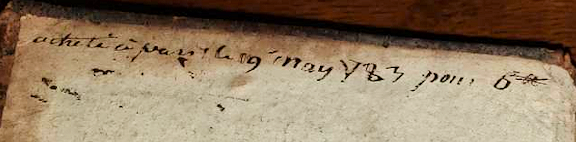 acheté à paris le 9 may 1783 pour 6#